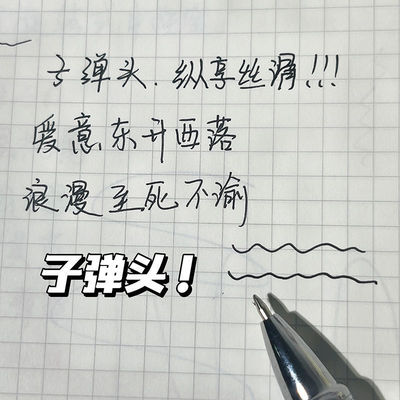 子弹头.纵享丝滑!!!
爱意东升西落
浪漫至死不渝
子弹头！